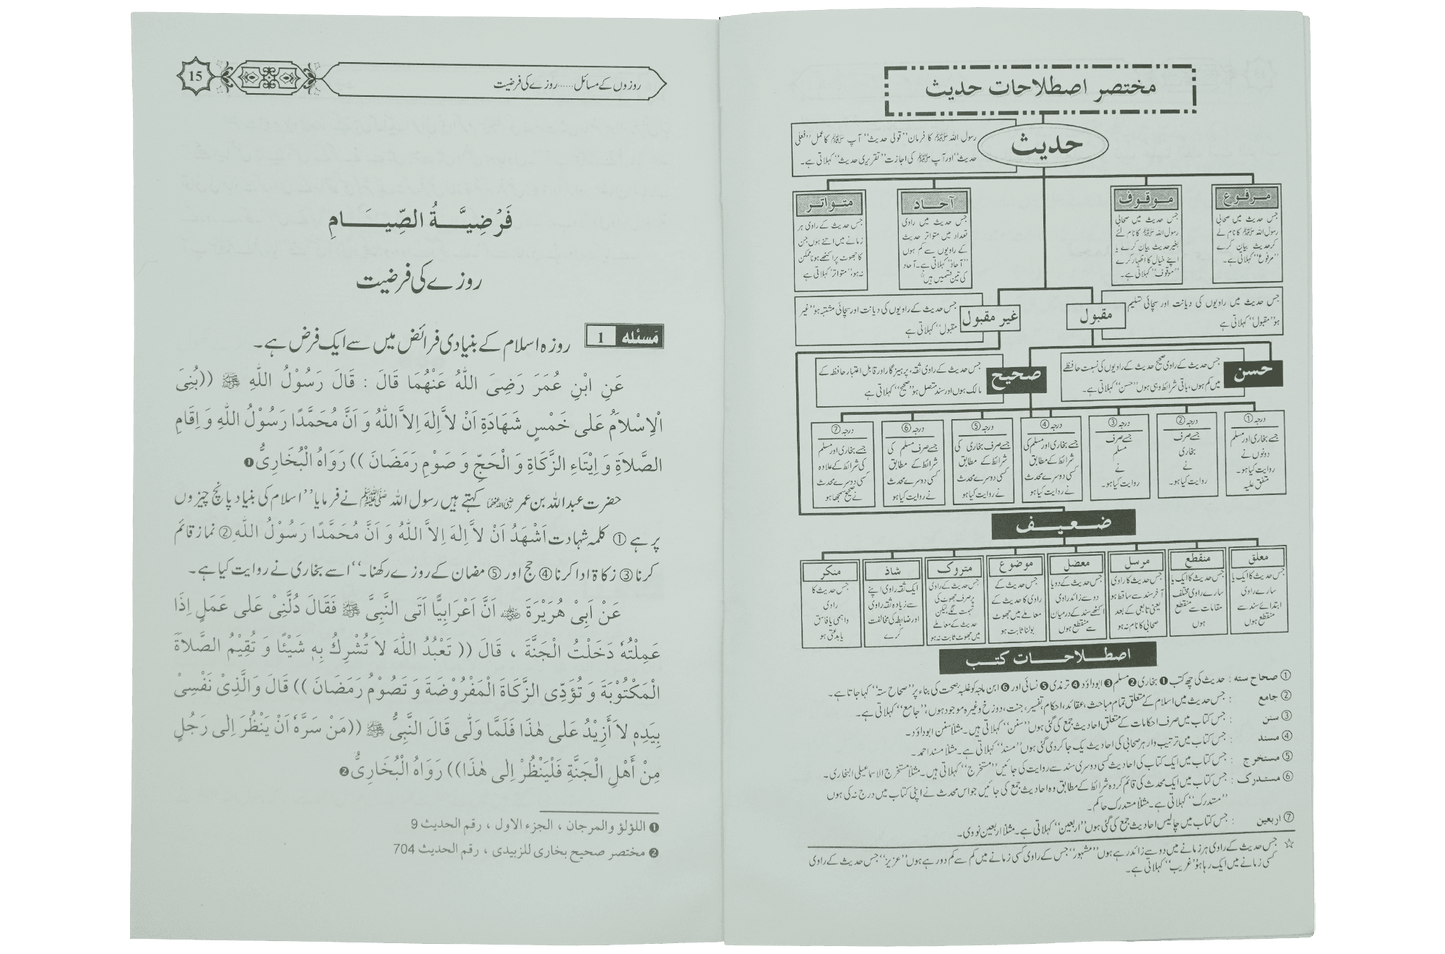 مختصر اصطلاحات حدیث
حدیث
رسول اللہ ﷺ کا فرمان ’’قولی حدیث‘‘ آپ ﷺ کا عمل ’’فعلی
حدیث‘‘ اور آپ ﷺ کی اجازت ’’تقریری حدیث‘‘ کہلاتی ہے۔
مرفوع
جس حدیث میں صحابی
رسول اللہ ﷺ کا نام لے
کر حدیث بیان کرے
’’مرفوع‘‘ کہلاتی ہے۔
موقوف
جس حدیث میں صحابی
رسول اللہ ﷺ کا نام لئے
بغیر حدیث بیان کرے یا
اپنے خیال کا اظہار کرے
’’موقوف‘‘ کہلاتی ہے۔
آحاد
جس حدیث میں راوی
تعداد میں متواتر حدیث
کے راویوں سے کم ہوں
’’آحاد‘‘ کہلاتی ہے۔ آحاد
کی تین قسمیں ہیں
متواتر
جس حدیث کے راوی ہر
زمانے میں اتنے ہوں جن
کا جھوٹ پر اکٹھے ہونا ممکن
نہ ہو ’’متواتر‘‘ کہلاتی ہے
مقبول
جس حدیث میں راویوں کی دیانت اور سچائی تسلیم
ہو ’’مقبول‘‘ کہلاتی ہے۔
غیر مقبول
جس حدیث کے راویوں کی دیانت اور سچائی مشتبہ ہو ’’غیر
مقبول‘‘ کہلاتی ہے
حسن
جس حدیث کے راوی صحیح حدیث کے راویوں کی نسبت حافظے
میں کم ہوں، باقی شرائط وہی ہوں ’’حسن‘‘ کہلاتی ہے۔
صحیح
جس حدیث کے راوی ثقہ، پرہیزگار اور قابل اعتبار حافظہ کے
مالک ہوں اور سند متصل ہو ’’صحیح‘‘ کہلاتی ہے
درجہ ①
جسے بخاری اور مسلم
دونوں نے
روایت کیا ہو۔
متفق علیہ
درجہ ②
جسے صرف
بخاری
نے
روایت کیا ہو۔
درجہ ③
جسے صرف
مسلم
نے
روایت کیا ہو۔
درجہ ④
جسے بخاری اور مسلم کی
شرائط کے مطابق
کسی دوسرے محدث
نے روایت کیا ہو
درجہ ⑤
جسے صرف بخاری کی
شرائط کے مطابق
کسی دوسرے محدث
نے روایت کیا ہو
درجہ ⑥
جسے صرف مسلم کی
شرائط کے مطابق
کسی دوسرے محدث
نے روایت کیا ہو
درجہ ⑦
جسے بخاری اور مسلم
کی شرائط کے علاوہ
کسی دوسرے محدث
نے صحیح سمجھا ہو
ضعیف
معلق
جس حدیث کا ایک یا
سارے راوی
ابتدائے سند سے
منقطع ہوں
منقطع
جس حدیث کا ایک یا
سارے راوی مختلف
مقامات سے منقطع
ہوں
مرسل
جس حدیث کا راوی
آخر سند سے ساقط ہو
یعنی تابعی کے بعد
صحابی کا نام نہ ہو
معضل
جس حدیث کے دو یا
دو سے زائد راوی
اکٹھے سند کے درمیان
سے منقطع ہوں
موضوع
جس حدیث کے
راوی کا حدیث کے
معاملے میں جھوٹ
بولنا ثابت ہو
متروک
جس حدیث کے راوی
پر صرف جھوٹ کی
تہمت لگے لیکن
حدیث کے معاملے
میں جھوٹ ثابت نہ ہو
شاذ
ایک ثقہ راوی اپنے
سے زیادہ ثقہ راوی
اور ضابطہ کی مخالفت
کرے
منکر
جس حدیث کا
راوی
وہمی یا فاسق
یا بدعتی ہو
اصطلاحات کتب
① صحاح ستہ : حدیث کی چھ کتب ❶ بخاری ❷ مسلم ❸ ابوداؤد ❹ ترمذی ❺ نسائی اور ❻ ابن ماجہ کو غلبہ صحت کی بناء پر ’’صحاح ستہ‘‘ کہا جاتا ہے۔
② جامع : جس حدیث میں اسلام کے متعلق تمام مباحث، عقائد، احکام، تفسیر، جنت، دوزخ وغیرہ موجود ہوں، ’’جامع‘‘ کہلاتی ہے۔
③ سنن : جس کتاب میں صرف احکامات کے متعلق احادیث جمع کی گئی ہوں ’’سنن‘‘ کہلاتی ہیں۔ مثلاً سنن ابوداؤد۔
④ مسند : جس کتاب میں ترتیب وار ہر صحابی کی احادیث یک جا کردی گئی ہوں ’’مسند‘‘ کہلاتی ہے۔ مثلاً مسند احمد۔
⑤ مستخرج : جس کتاب میں ایک کتاب کی احادیث کسی دوسری سند سے روایت کی جائیں ’’مستخرج‘‘ کہلاتی ہیں۔ مثلاً مستخرج الاسماعیلی البخاری۔
⑥ مستدرک : جس کتاب میں ایک محدث کی قائم کردہ شرائط کے مطابق وہ احادیث جمع کی جائیں جو اس محدث نے اپنی کتاب میں درج نہ کی ہوں
’’مستدرک‘‘ کہلاتی ہے۔ مثلاً مستدرک حاکم۔
⑦ اربعین : جس کتاب میں چالیس احادیث جمع کی گئی ہوں ’’اربعین‘‘ کہلاتی ہے۔ مثلاً اربعین نووی۔
☆ جس حدیث کے راوی ہر زمانے میں دو سے زائد رہے ہوں ’’مشہور‘‘ جس کے راوی کسی زمانے میں کم سے کم دو رہے ہوں ’’عزیز‘‘ جس حدیث کے راوی
کسی زمانے میں ایک رہا ہو ’’غریب‘‘ کہلاتی ہے۔
روزوں کے مسائل......روزے کی فرضیت
15
فَرْضِیَّةُ الصِّیَامِ
روزے کی فرضیت
مَسئلہ 1 روزہ اسلام کے بنیادی فرائض میں سے ایک فرض ہے۔
عَنِ ابْنِ عُمَرَ رَضِیَ اللّٰہُ عَنْہُمَا قَالَ : قَالَ رَسُوْلُ اللّٰہِ ﷺ ((بُنِیَ
الْاِسْلاَمُ عَلٰی خَمْسٍ شَہَادَةِ اَنْ لاَّ اِلٰہَ اِلاَّ اللّٰہُ وَ اَنَّ مُحَمَّدًا رَسُوْلُ اللّٰہِ وَ اِقَامِ
الصَّلاَةِ وَ اِیْتَاءِ الزَّکَاةِ وَ الْحَجِّ وَ صَوْمِ رَمَضَانَ )) رَوَاہُ الْبُخَارِیُّ❶
حضرت عبداللہ بن عمر رضی اللہ عنہما کہتے ہیں رسول اللہ ﷺ نے فرمایا ’’اسلام کی بنیاد پانچ چیزوں
پر ہے ① کلمہ شہادت اَشْہَدُ اَنْ لاَّ اِلٰہَ اِلاَّ اللّٰہُ وَ اَنَّ مُحَمَّدًا رَسُوْلُ اللّٰہِ ② نماز قائم
کرنا ③ زکاۃ ادا کرنا ④ حج اور ⑤ مضان کے روزے رکھنا۔‘‘ اسے بخاری نے روایت کیا ہے۔
عَنْ اَبِیْ ہُرَیْرَةَ ﷜ اَنَّ اَعْرَابِیًّا اَتَی النَّبِیَّ ﷺ فَقَالَ دُلَّنِیْ عَلٰی عَمَلٍ اِذَا
عَمِلْتُہٗ دَخَلْتُ الْجَنَّةَ ، قَالَ (( تَعْبُدُ اللّٰہَ لاَ تُشْرِكُ بِہٖ شَیْئًا وَ تُقِیْمُ الصَّلاَةَ
الْمَکْتُوْبَةَ وَ تُؤَدِّی الزَّکَاةَ الْمَفْرُوْضَةَ وَ تَصُوْمُ رَمَضَانَ )) قَالَ وَالَّذِیْ نَفْسِیْ
بِیَدِہٖ لاَ اَزِیْدُ عَلٰی ہٰذَا فَلَمَّا وَلّٰی قَالَ النَّبِیُّ ﷺ ((مَنْ سَرَّہٗ اَنْ یَنْظُرَ اِلٰی رَجُلٍ
مِنْ اَہْلِ الْجَنَّةِ فَلْیَنْظُرْ اِلٰی ہٰذَا)) رَوَاہُ الْبُخَارِیُّ❷
❶ اللؤلؤ والمرجان ، الجزء الاول ، رقم الحدیث 9
❷ مختصر صحیح بخاری للزبیدی ، رقم الحدیث 704